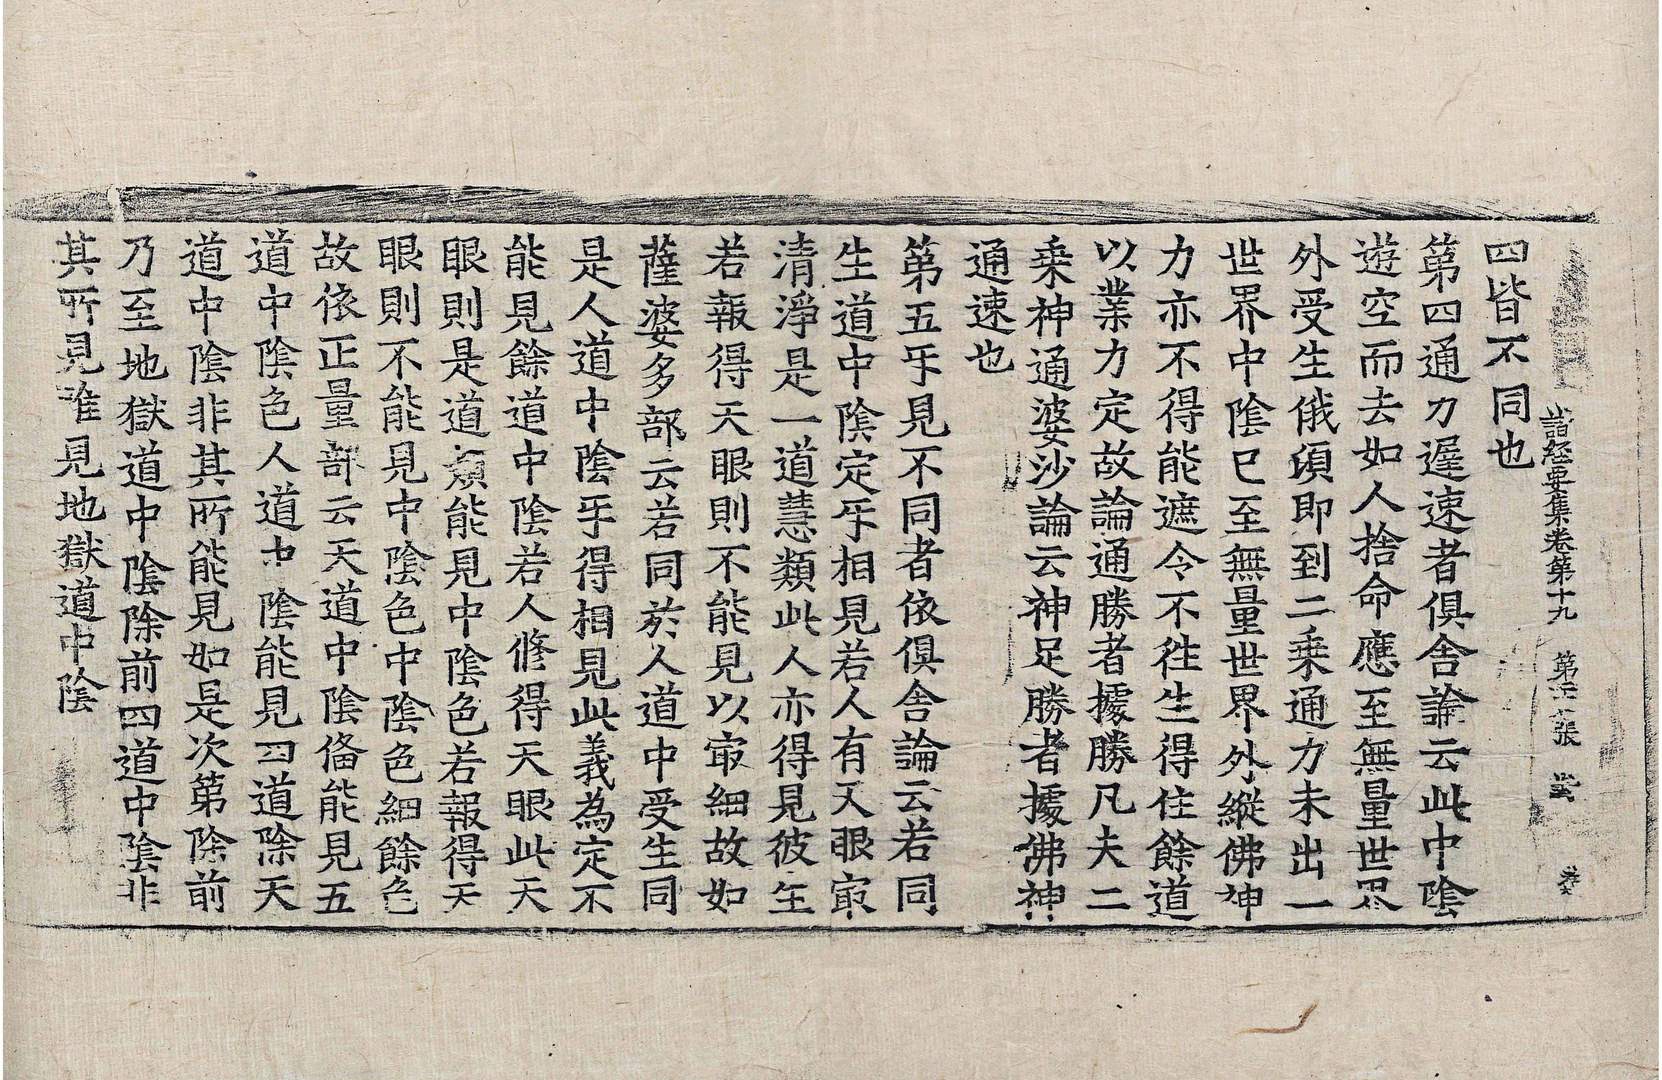 諸經要集卷第十九 第 張
四皆不同也
第四通力遲速者俱舍論云此中陰
遊空而去如人捨命應至無量世界
外受生俄須即到二乗通力未出一
世界中陰已至無量世界外縱佛神
力亦不得能遮令不往生得住餘道
以業力定故論通勝者據勝凡夫二
乗神通婆沙論云神足勝者據佛神
通速也
第五㸦見不同者依俱舍論云若同
生道中陰定㸦相見若人有天眼㝡
清淨是一道慧類此人亦得見彼生
若報得天眼則不能見以㝡細故如
薩婆多部云若同於人道中受生同
是人道中陰㸦得相見此義為定不
能見餘道中陰若人修得天眼此天
眼則是道類能見中陰色若報得天
眼則不能見中陰色中陰色細餘色
故依正量部云天道中陰俻能見五
道中陰色人道中陰能見四道除天
道中陰非其所能見如是次第除前
乃至地獄道中陰除前四道中陰非
其所見唯見地獄道中陰